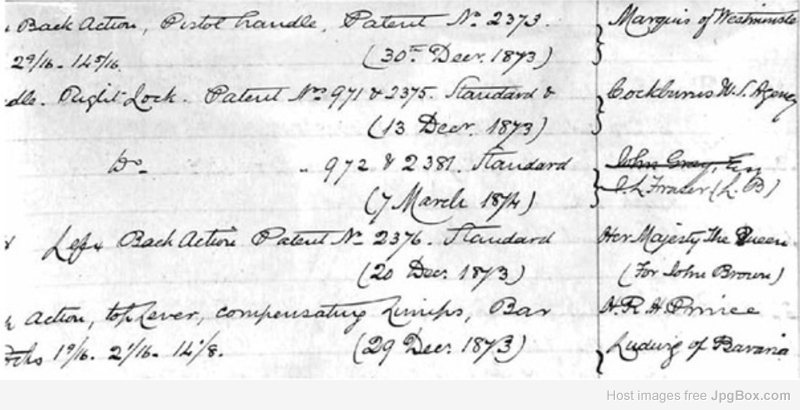 Back Action, Pistol handle. Patent No. 2373. Marquis of Westminste
2 9/16 - 14 5/16 (30th Decr. 1873)
dle. Right Lock. Patent Nos 971 & 2375. Standard & Cockburns W. S. Agency
(13 Decr. 1873)
Do. 972 & 2381. Standard John Gray, Esq
(7 March 1874) Fraser (L. B)
Left Back Action Patent No. 2376. Standard Her Majesty The Queen
(20 Decr. 1873) (For John Brown)
Action, top lever, compensating Lumps, Bar H. R. H Prince
1 9/16. 2 1/16. 14 1/8. (29 Decr. 1873) Ludwig of Bavaria
Host images free JpgBox.com